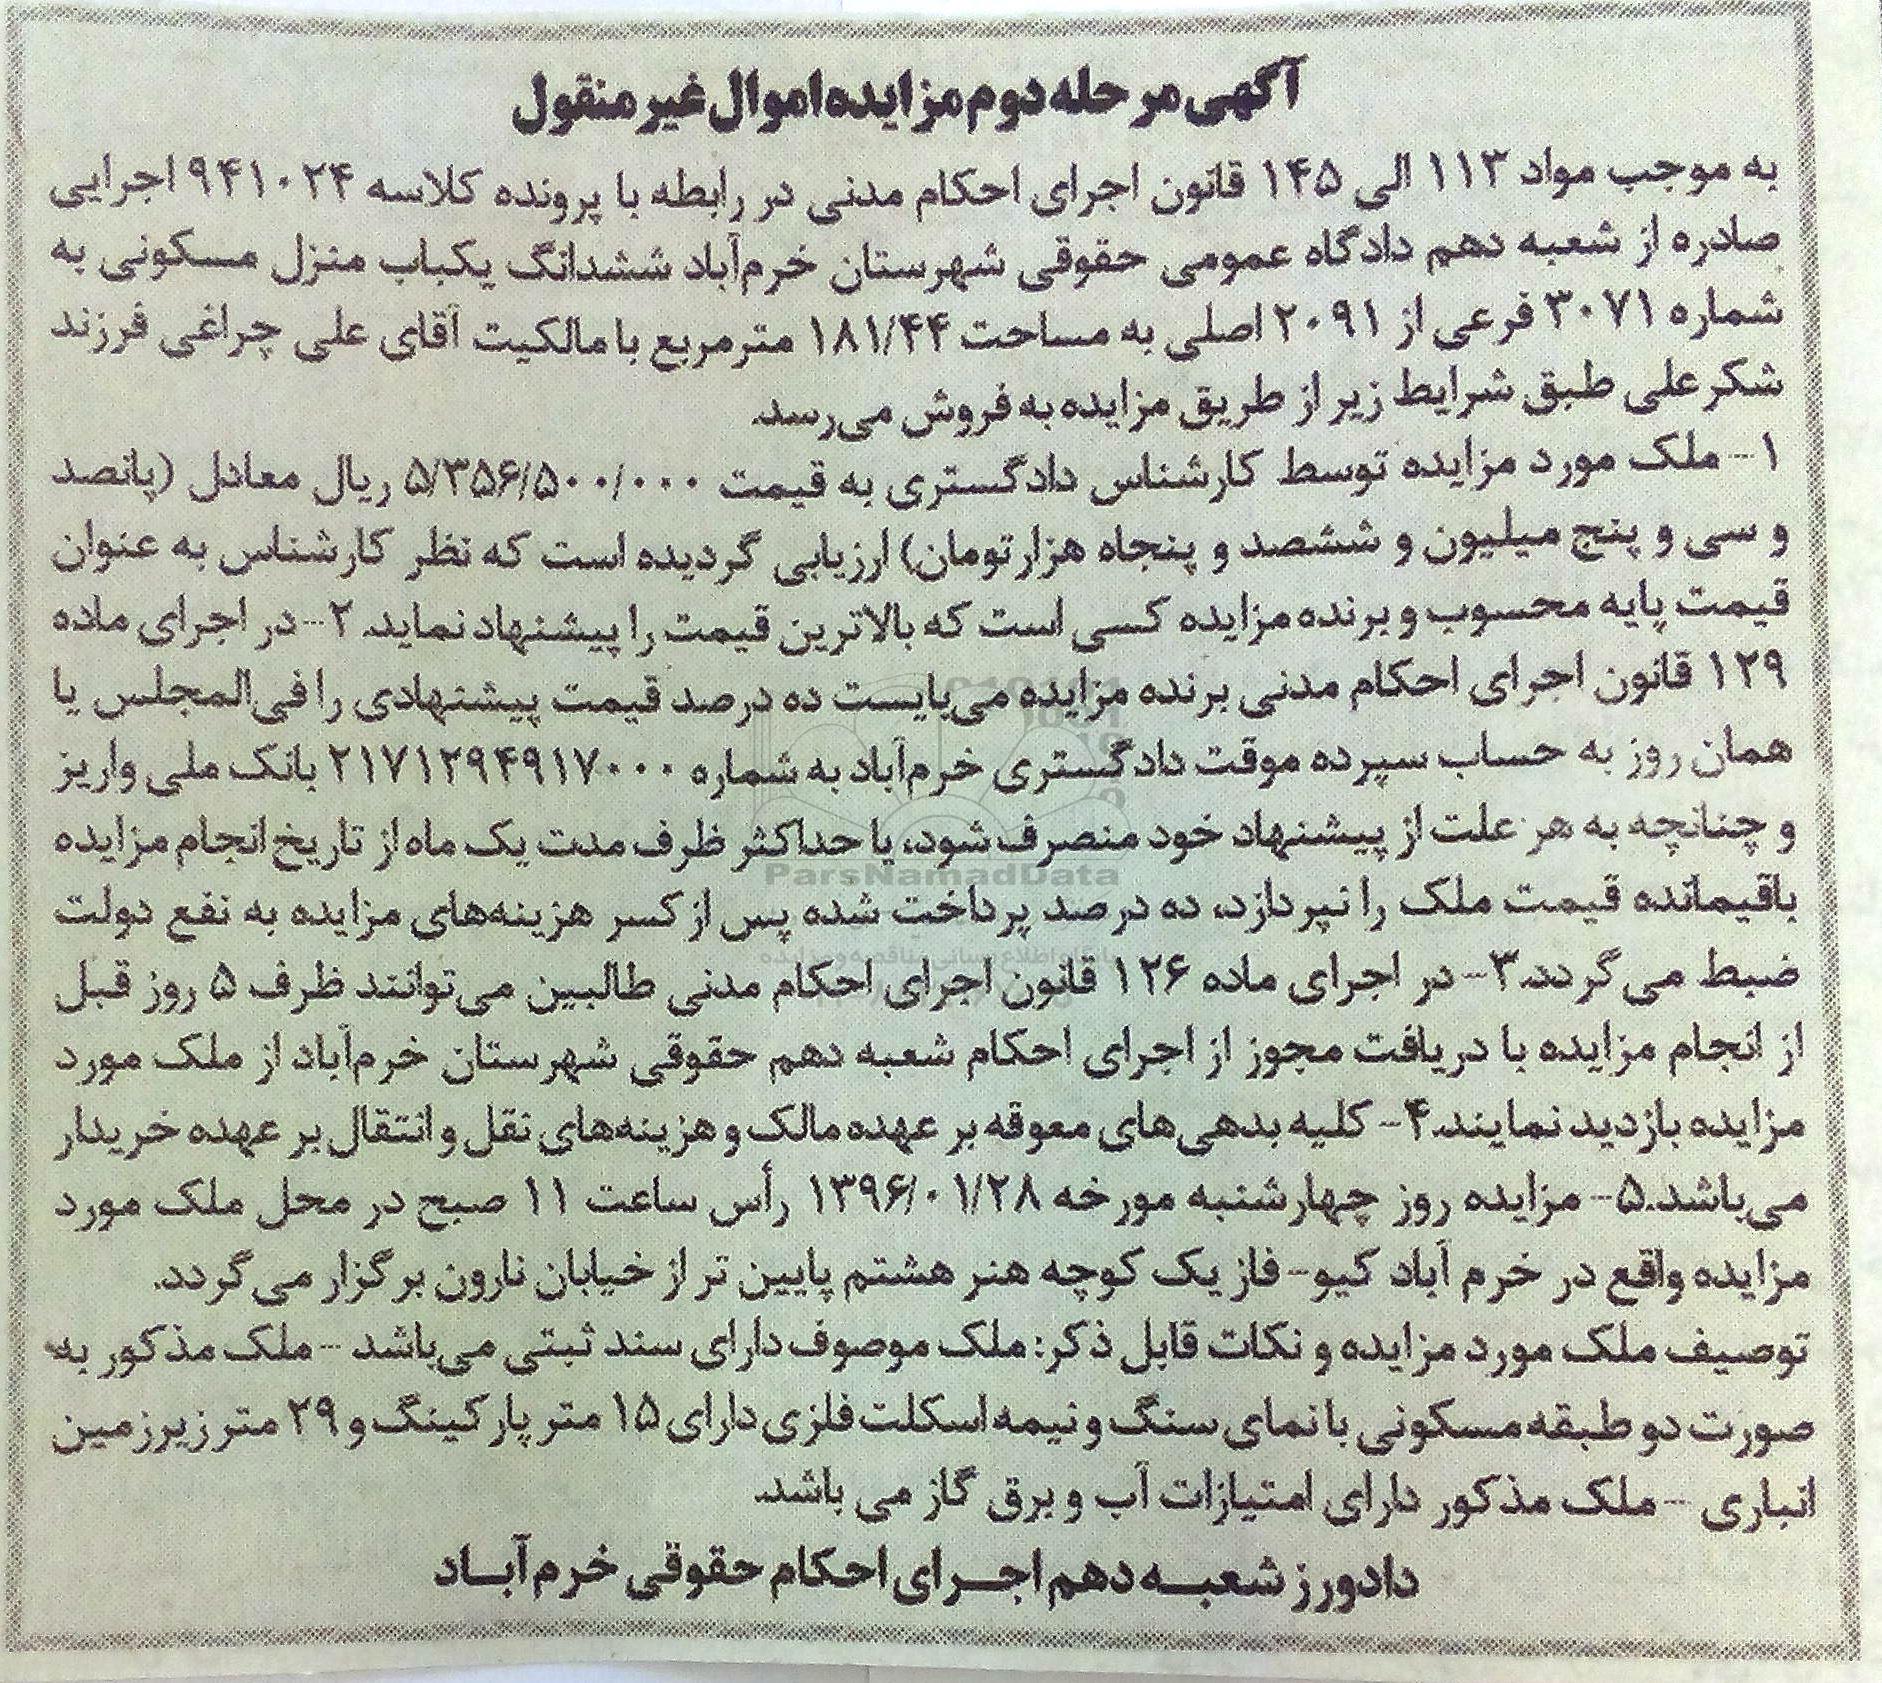 آگهی مرحله دوم مزایده اموال غیر منقول
به موجب مواد ۱۱۳ الی ۱۴۵ قانون اجرای احکام مدنی در رابطه با پرونده کلاسه ۹۴۱۰۲۴ اجرایی
صادره از شعبه دهم دادگاه عمومی حقوقی شهرستان خرم‌آباد ششدانگ یکباب منزل مسکونی به
شماره ۳۰۷۱ فرعی از ۲۰۹۱ اصلی به مساحت ۱۸۱/۴۴ مترمربع با مالکیت آقای علی چراغی فرزند
شکر علی طبق شرایط زیر از طریق مزایده به فروش می‌رسد.
۱-- ملک مورد مزایده توسط کارشناس دادگستری به قیمت ۵/۳۵۶/۵۰۰/۰۰۰ ریال معادل (پانصد
و سی و پنج میلیون و ششصد و پنجاه هزار تومان) ارزیابی گردیده است که نظر کارشناس به عنوان
قیمت پایه محسوب و برنده مزایده کسی است که بالاترین قیمت را پیشنهاد نماید. ۲-- در اجرای ماده
۱۲۹ قانون اجرای احکام مدنی برنده مزایده می‌بایست ده درصد قیمت پیشنهادی را فی‌المجلس یا
همان روز به حساب سپرده موقت دادگستری خرم‌آباد به شماره ۲۱۷۱۲۹۴۹۱۷۰۰۰ بانک ملی واریز
و چنانچه به هر علت از پیشنهاد خود منصرف شود، یا حداکثر ظرف مدت یک ماه از تاریخ انجام مزایده
باقیمانده قیمت ملک را نپردازد، ده درصد پرداخت شده پس از کسر هزینه‌های مزایده به نفع دولت
ضبط می گردد.۳-- در اجرای ماده ۱۲۶ قانون اجرای احکام مدنی طالبین می‌توانند ظرف ۵ روز قبل
از انجام مزایده با دریافت مجوز از اجرای احکام شعبه دهم حقوقی شهرستان خرم‌آباد از ملک مورد
مزایده بازدید نمایند.۴- کلیه بدهی‌های معوقه بر عهده مالک و هزینه‌های نقل و انتقال بر عهده خریدار
می‌باشد.۵- مزایده روز چهارشنبه مورخه ۱۳۹۶/۰۱/۲۸ رأس ساعت ۱۱ صبح در محل ملک مورد
مزایده واقع در خرم آباد کیو- فاز یک کوچه هنر هشتم پایین تر از خیابان نارون برگزار می گردد.
توصیف ملک مورد مزایده و نکات قابل ذکر: ملک موصوف دارای سند ثبتی می‌باشد -- ملک مذکور به
صورت دو طبقه مسکونی با نمای سنگ و نیمه اسکلت فلزی دارای ۱۵ متر پارکینگ و ۲۹ متر زیرزمین
انباری -- ملک مذکور دارای امتیازات آب و برق گاز می باشد.
دادورز شعبه دهم اجرای احکام حقوقی خرم آباد
ParsNamadData